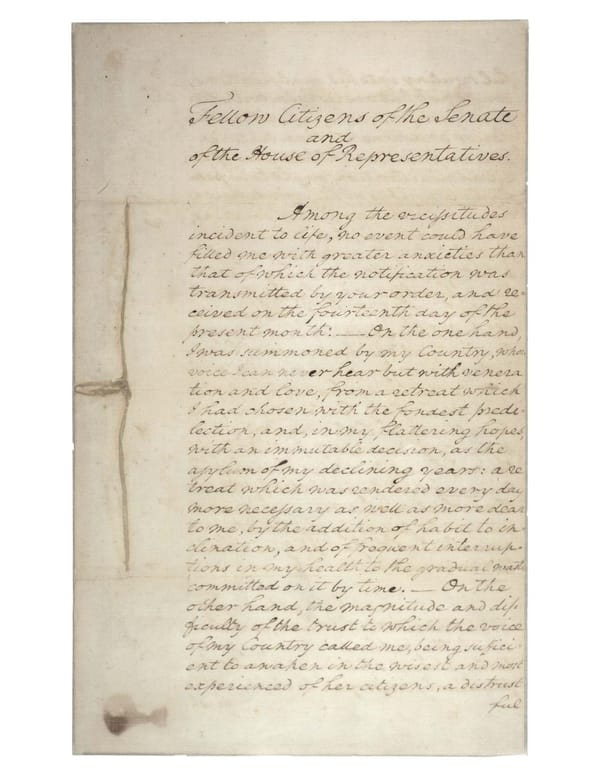 Fellow Citizens of the Senate
and
of the House of Representatives.
Among the vicissitudes
incident to life, no event could have
filled me with greater anxieties than
that of which the notification was
transmitted by your order, and re-
ceived on the fourteenth day of the
present month: — On the one hand,
I was summoned by my Country, whose
voice I can never hear but with venera
tion and love, from a retreat which
I had chosen with the fondest prede-
lection, and, in my flattering hopes,
with an immutable decision, as the
asylum of my declining years: a re
treat which was rendered every day
more necessary as well as more dear
to me, by the addition of habit to in-
clination, and of frequent interrup-
tions in my health to the gradual waste
committed on it by time. — On the
other hand, the magnitude and dif-
ficulty of the trust to which the voice
of my Country called me, being suffici
ent to awaken in the wisest and most
experienced of her citizens, a distrust
ful